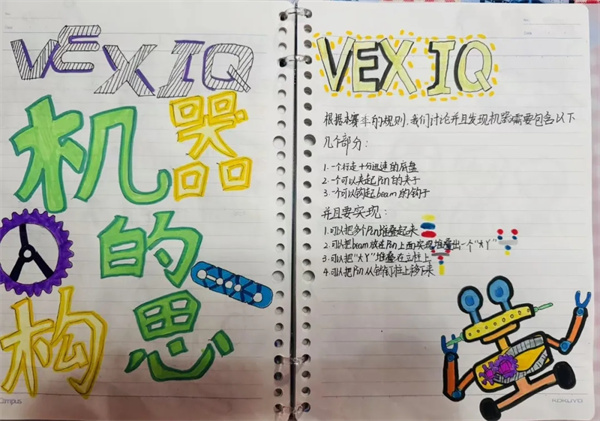 VEX IQ
机器
的
构思
Campus
VEX IQ
根据本赛季的规则,我们讨论并且发现机器需要包含以下
几个部分:
1.一个行走十分迅速的底盘
2.一个可以夹起Pin的夹子
3.一个可以钩起beam的钩子
并且要实现:
1.可以把多个Pin堆叠起来
2.可以把beam放在Pin上面实现堆叠出一个“大丫”
3.可以把“大丫”堆叠在立柱上
4.可以把Pin从 上移下来
KOKUYO